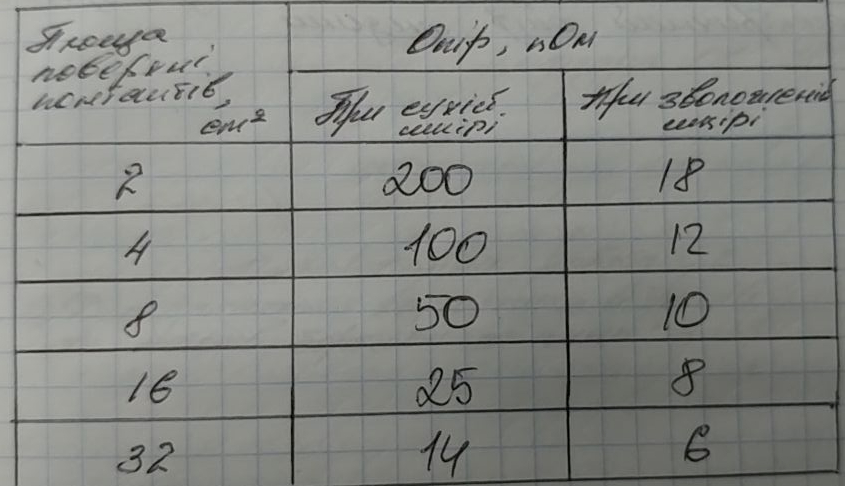 Площа
поверхні
контактів,
см²
Опір, кОм
При сухій
шкірі
При зволоженій
шкірі
2 200 18
4 100 12
8 50 10
16 25 8
32 14 6